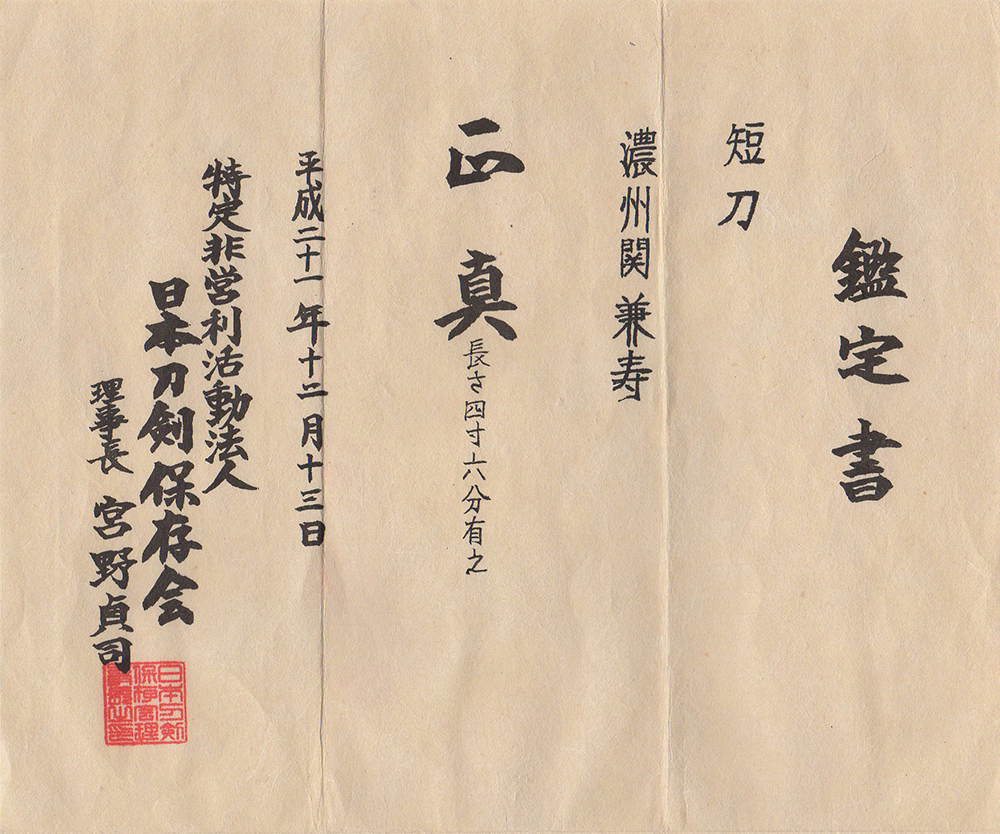 鑑定書
短刀
濃州関兼寿
正真
長さ四寸六分有之
平成二十一年十二月十三日
特定非営利活動法人
日本刀剣保存会
理事長 宮野貞司
日本刀剣